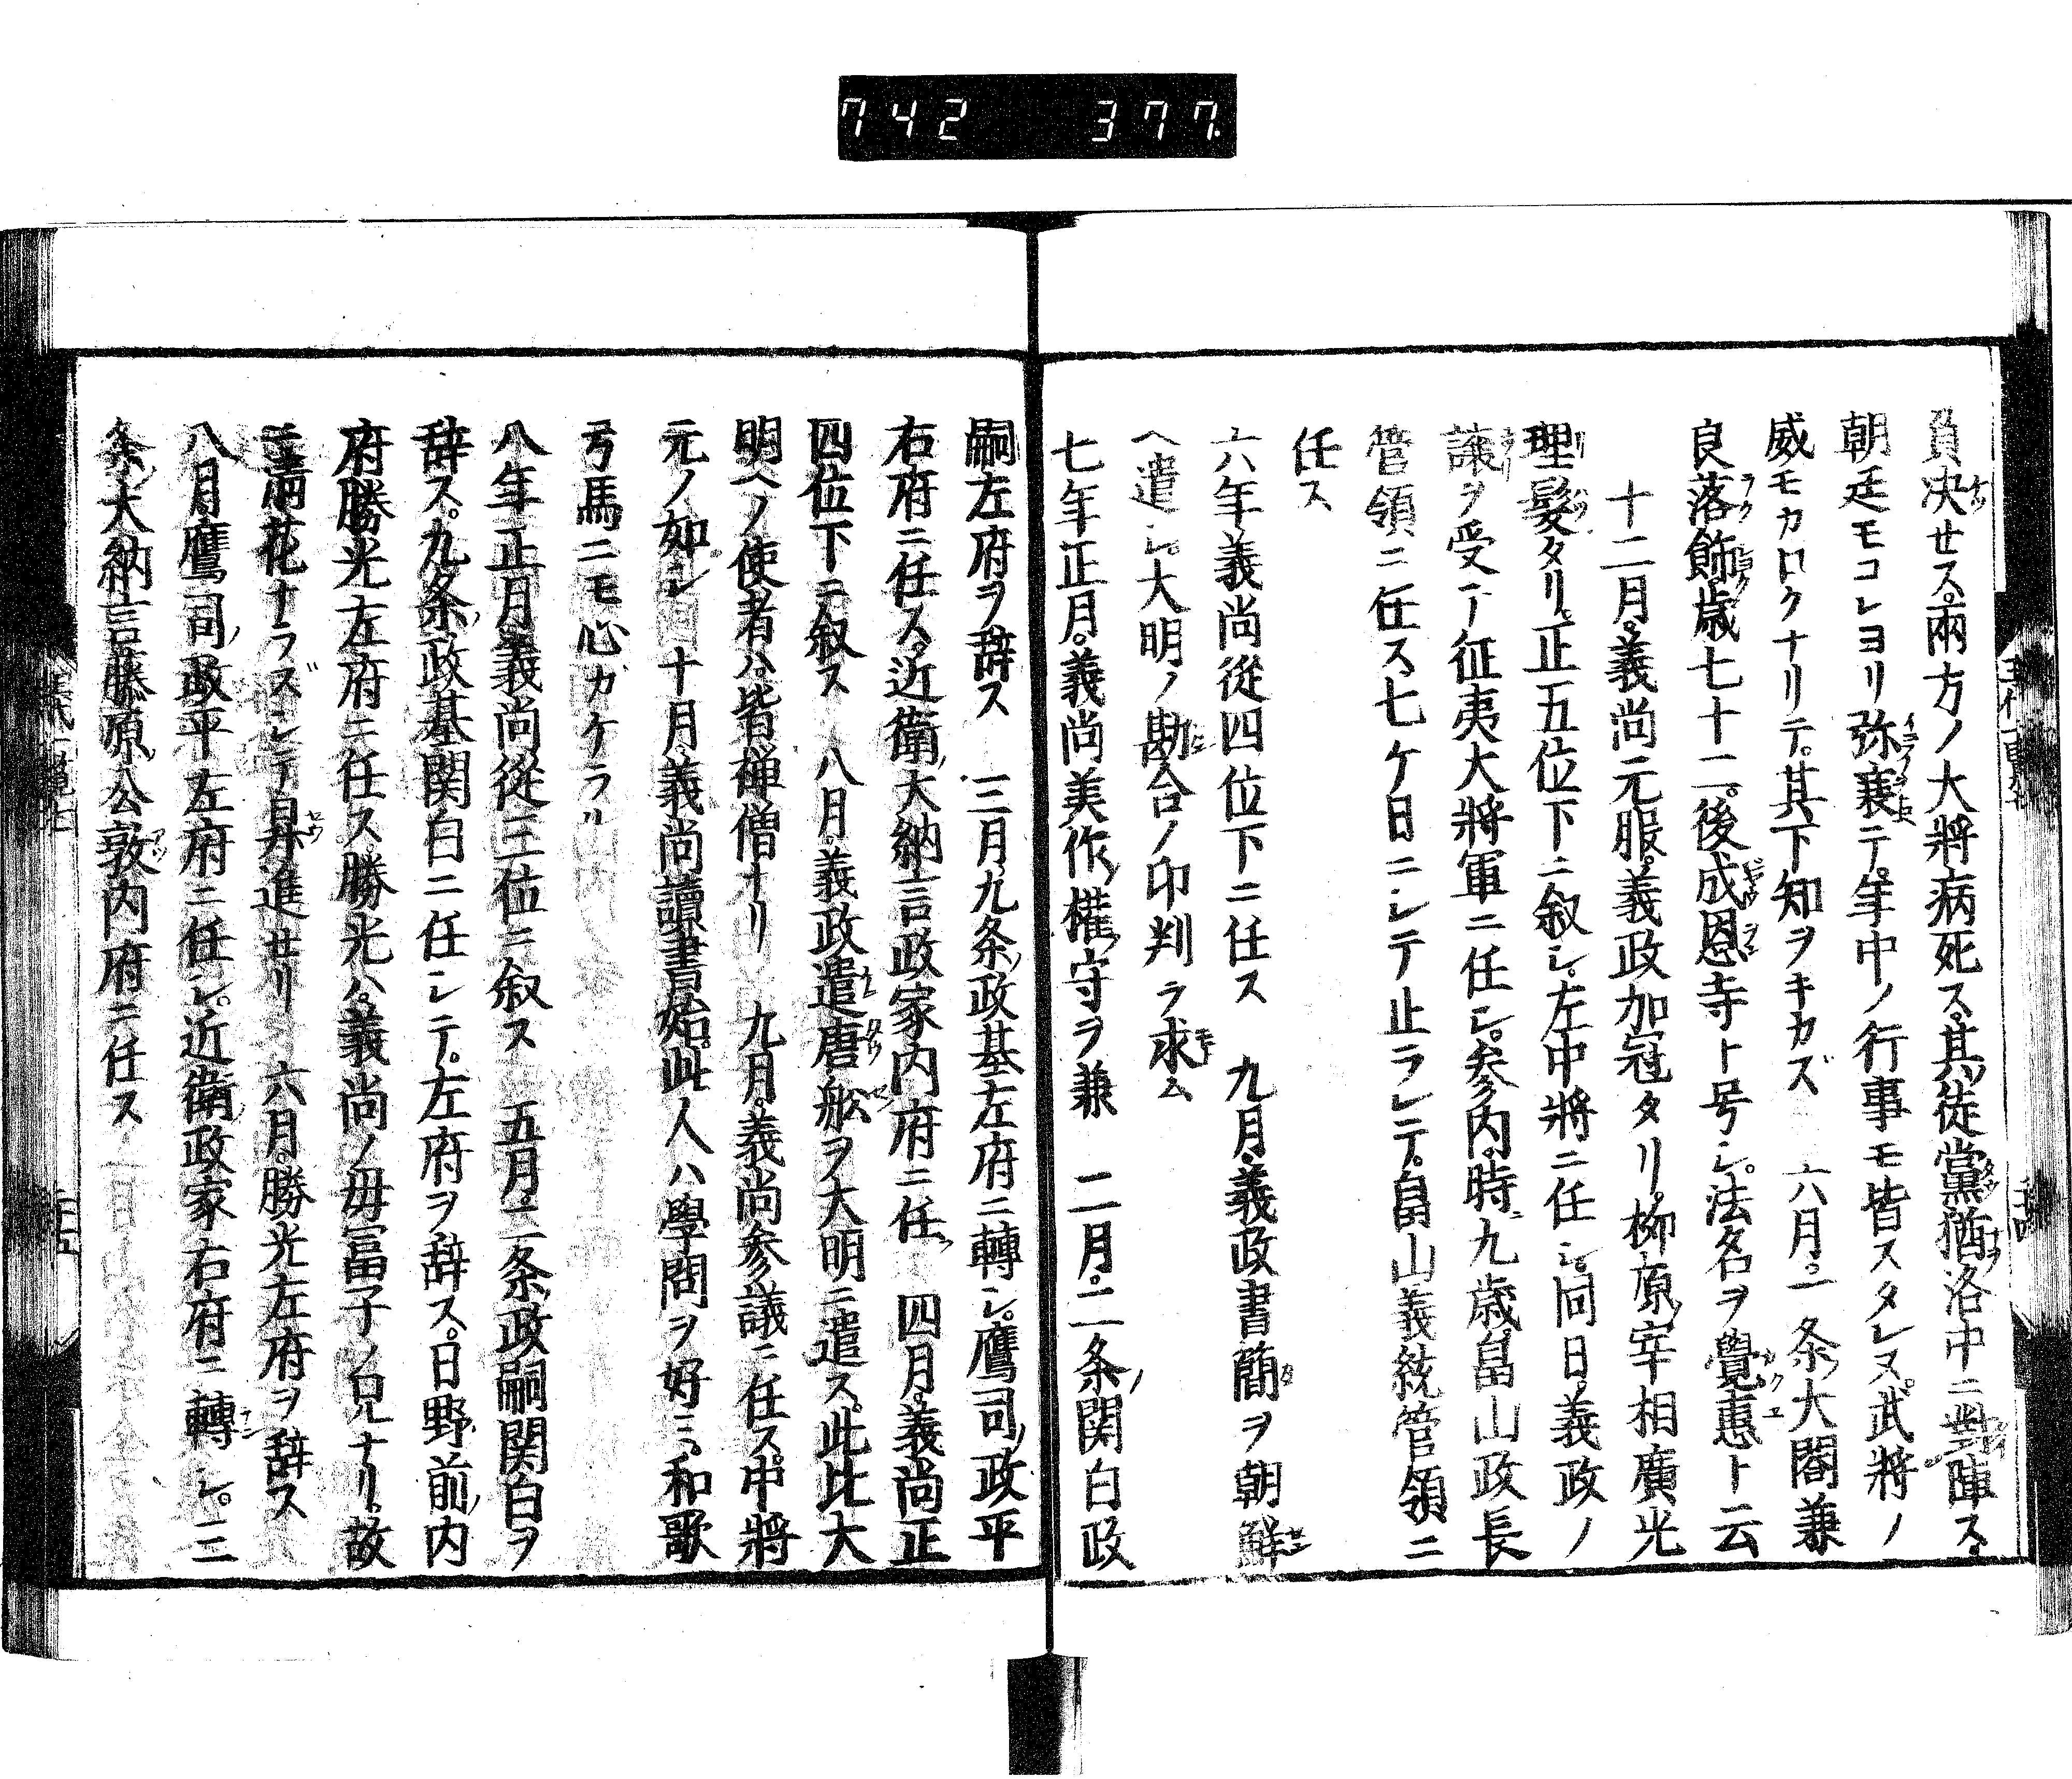 742 377
負決せス。兩方ノ大將病死ス。其徒黨猶洛中ニ對陣ス。
朝廷モコレヨリ弥衰テ。年中ノ行事モ皆スタレヌ。武將ノ
威モカロクナリテ。其下知ヲキカズ 六月。一条大閤兼
良落飾歳七十二。後成恩寺ト号シ。法名ヲ覺惠ト云
十二月。義尚元服。義政加冠タリ。柳原宰相廣光
理髮タリ。正五位下ニ叙シ。左中將ニ任シ。同日。義政ノ
譲ヲ受テ征夷大將軍ニ任シ。参内。時ニ九歳畠山政長
管領ニ任ス七ケ日ニシテ止ラレテ。畠山義統管領ニ
任ス
六年義尚從四位下ニ任ス 九月。義政書簡ヲ朝鮮
ヘ遣シ。大明ノ勘合ノ印判ヲ求ム
七年正月。義尚美作権守ヲ兼 二月。二条関白政
嗣左府ヲ辞ス 三月。九条政基左府ニ轉シ。鷹司政平
右府ニ任ス。近衛大納言政家内府ニ任 四月。義尚正
四位下ニ叙ス 八月。義政遣唐舩ヲ大明ニ遣ス。此比大
明ヘノ使者ハ皆禅僧ナリ 九月。義尚参議ニ任ス。中將
元ノ如シ 十月。義尚讀書始。此人ハ學問ヲ好ミ。和歌
弓馬ニモ心ガケラル
八年正月義尚從三位ニ叙ス 五月。二条政嗣関白ヲ
辞ス。九条政基関白ニ任シテ。左府ヲ辞ス。日野前内
府勝光左府ニ任ス。勝光ハ。義尚ノ母富子ノ兄ナリ。故
ニ清花ナラズシテ昇進せリ 六月。勝光左府ヲ辞ス
八月鷹司政平左府ニ任シ。近衛政家右府ニ轉シ。三
条大納言藤原公敦内府ニ任ス